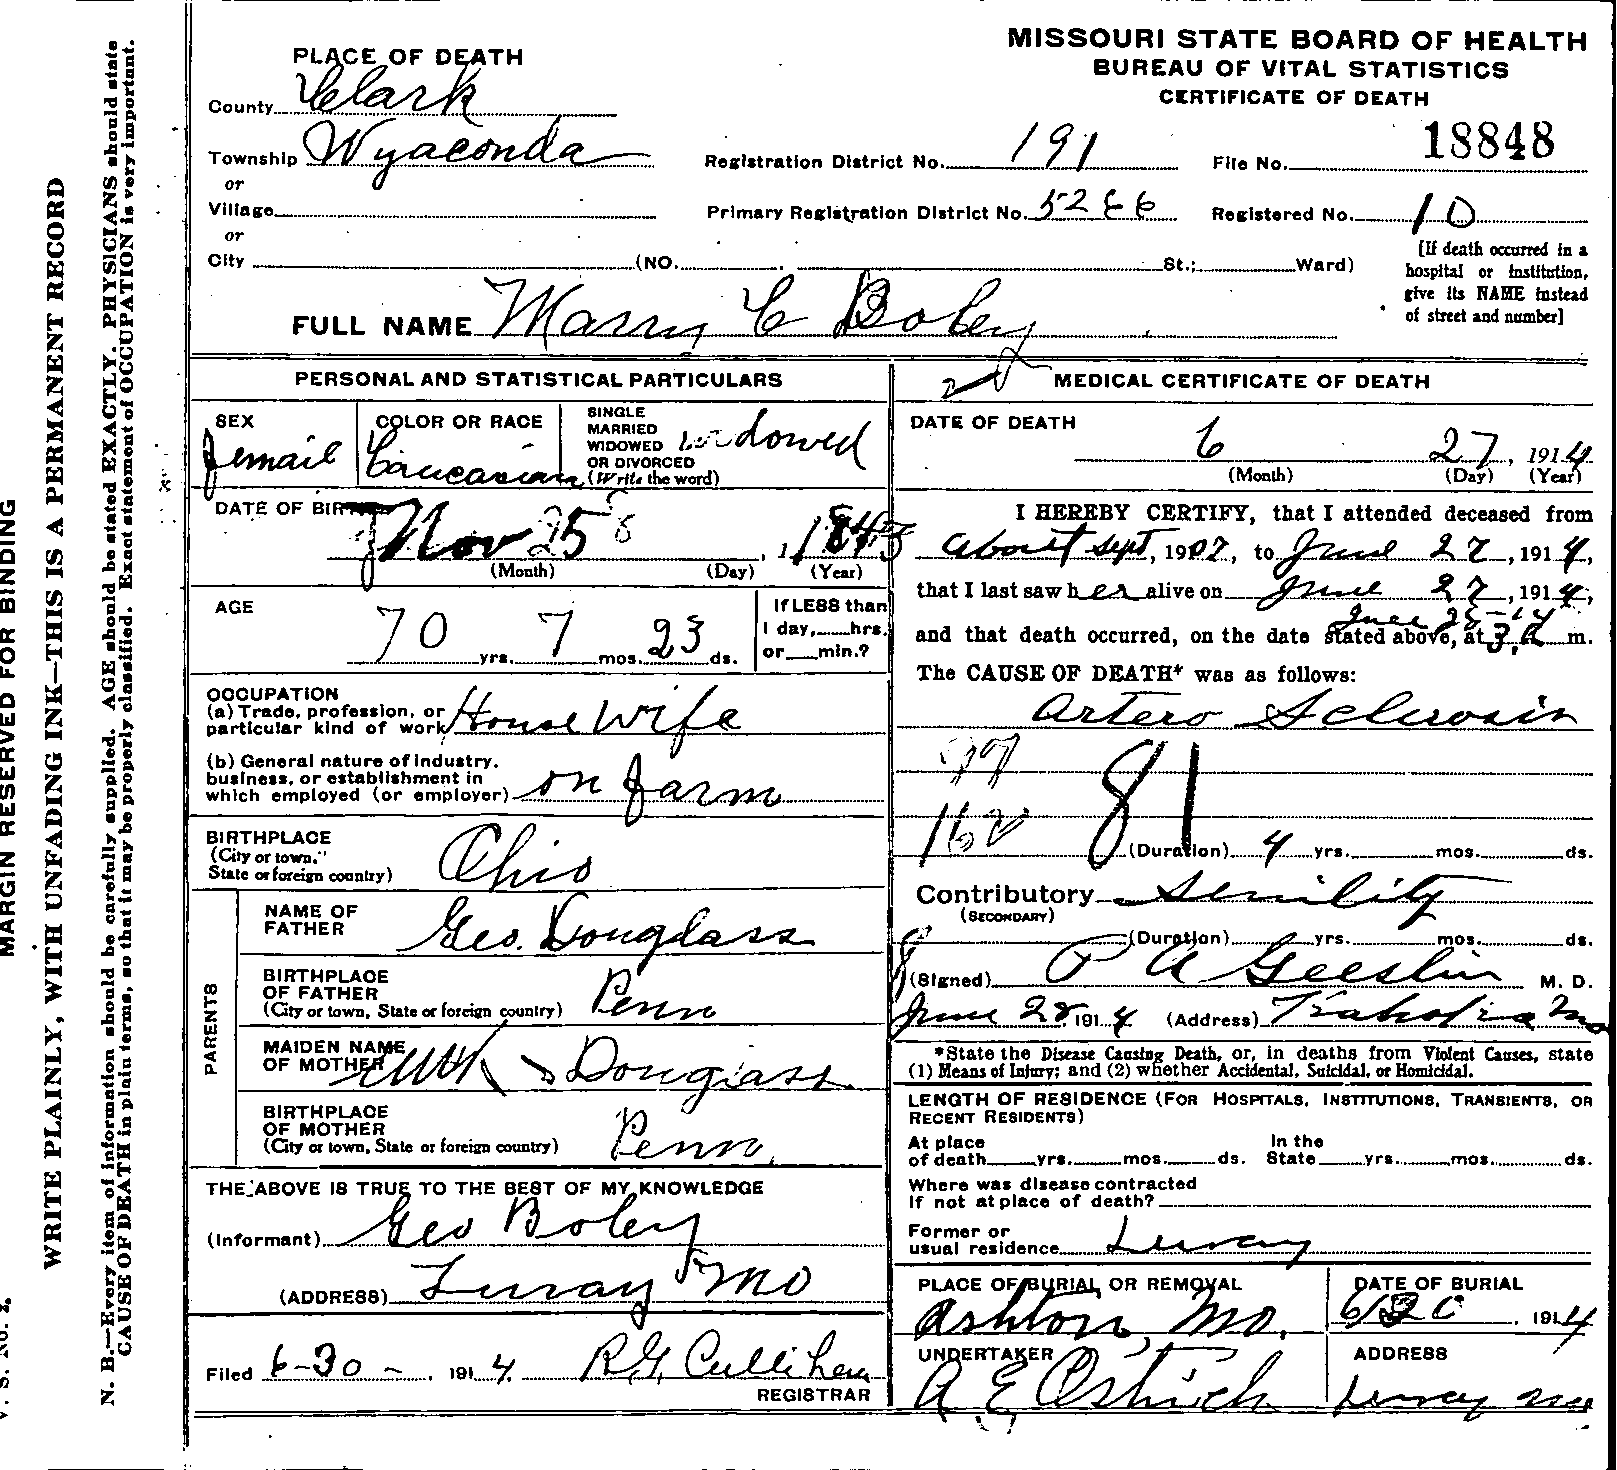 MISSOURI STATE BOARD OF HEALTH
BUREAU OF VITAL STATISTICS
CERTIFICATE OF DEATH
PLACE OF DEATH
County Clark
Township Wyaconda Registration District No. 191 File No. 18848
or
Village Primary Registration District No. 5266 Registered No. 10
or
City (NO. St.; Ward)
[If death occurred in a
hospital or institution,
give its NAME instead
of street and number]
FULL NAME Marry C Boley
PERSONAL AND STATISTICAL PARTICULARS
SEX Femail
COLOR OR RACE Caucasian
SINGLE
MARRIED
WIDOWED
OR DIVORCED
(Write the word) widowed
DATE OF BIRTH
Nov 25 1843
(Month) (Day) (Year)
AGE
70 yrs. 7 mos. 23 ds.
If LESS than
1 day, hrs.
or min.?
OCCUPATION
(a) Trade, profession, or
particular kind of work House Wife
(b) General nature of industry,
business, or establishment in
which employed (or employer) on farm
BIRTHPLACE
(City or town,
State or foreign country) Ohio
PARENTS
NAME OF
FATHER Geo. Douglass
BIRTHPLACE
OF FATHER
(City or town, State or foreign country) Penn
MAIDEN NAME
OF MOTHER Douglass
BIRTHPLACE
OF MOTHER
(City or town, State or foreign country) Penn
THE ABOVE IS TRUE TO THE BEST OF MY KNOWLEDGE
(Informant) Geo Boley
(ADDRESS) Luray Mo
Filed 6-30-, 1914. R.G. Cullihen
REGISTRAR
MEDICAL CERTIFICATE OF DEATH
DATE OF DEATH
6 27, 1914
(Month) (Day) (Year)
I HEREBY CERTIFY, that I attended deceased from
about sept, 1907, to June 27, 1914,
that I last saw her alive on June 27, 1914,
June
and that death occurred, on the date stated above, at 3 m.
The CAUSE OF DEATH* was as follows:
Artero Sclerosis
97
81
162
(Duration) 4 yrs. mos. ds.
Contributory Senility
(SECONDARY)
(Duration) yrs. mos. ds.
(Signed) P A Geeslin M. D.
June 28, 1914 (Address) Kahoka Mo
*State the Disease Causing Death, or, in deaths from Violent Causes, state
(1) Means of Injury; and (2) whether Accidental, Suicidal, or Homicidal.
LENGTH OF RESIDENCE (FOR HOSPITALS, INSTITUTIONS, TRANSIENTS, OR
RECENT RESIDENTS)
At place In the
of death yrs. mos. ds. State yrs. mos. ds.
Where was disease contracted
if not at place of death?
Former or
usual residence Luray
PLACE OF BURIAL OR REMOVAL
Ashton, Mo.
DATE OF BURIAL
, 1914
UNDERTAKER
A E
ADDRESS
Luray Mo
MARGIN RESERVED FOR BINDING
WRITE PLAINLY, WITH UNFADING INK—THIS IS A PERMANENT RECORD
N. B.—Every item of information should be carefully supplied. AGE should be stated EXACTLY. PHYSICIANS should state
CAUSE OF DEATH in plain terms, so that it may be properly classified. Exact statement of OCCUPATION is very important.
V. S. No. 2.